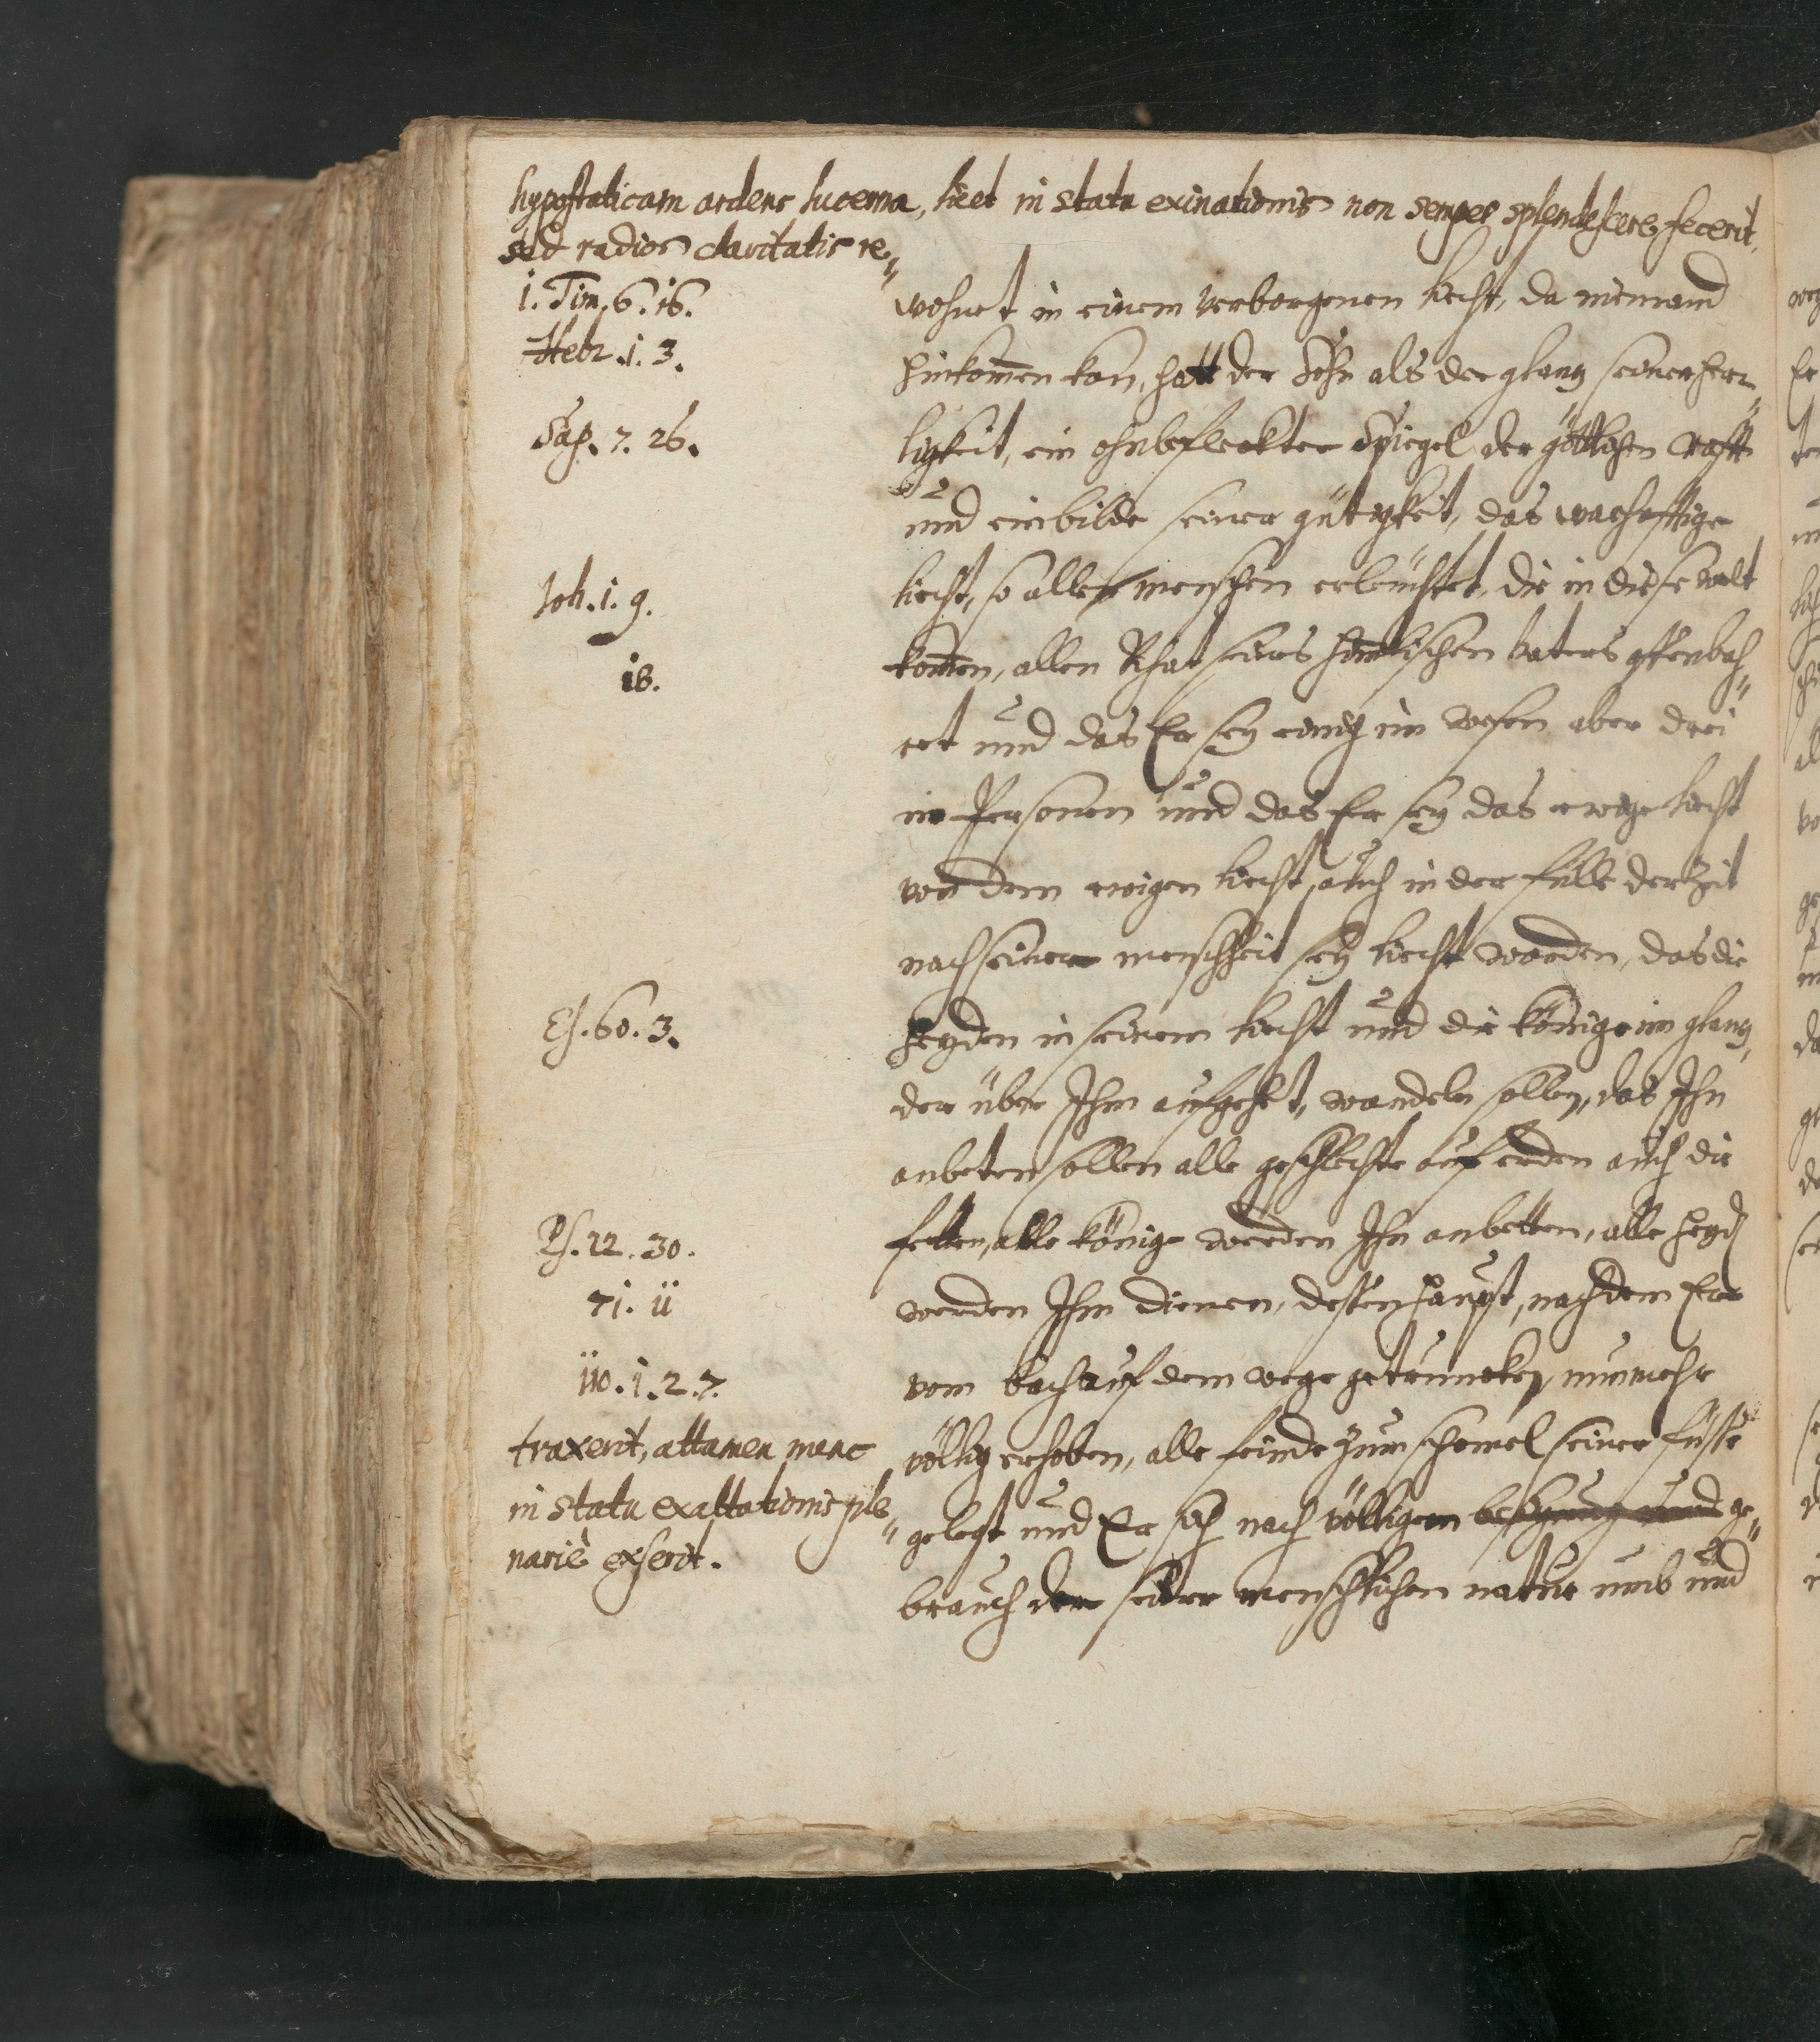 hypostaticam ardens lucerna, licet in statu exinationis non semper splendescere fecerit,
sed radios claritatis re„
1. Tim. 6. 16.
Hebr. 1. 3.
Sap. 7. 26.
Joh. 1. 9.
18.
Es. 60. 3.
Ps. 22. 30.
71. 11
110. 1. 2. 7.
traxerit, attamen nunc
in statu exaltationis ple„
nariè exserit.
wohnet in einem verborgenen liecht, da niemand
hinkom̄en kan, hatt der Sohn als der glantz seiner herr„
ligkeit, ein ohnbeflekter Spiegel der göttlichen krafft
und einbilde seiner gütigkeit, das warhafftige
liecht, so alle menschen erleuchtet, die in diese welt
kom̄en, allen Rhat seines him̄lischen vaters offenbah„
ret und das Er sey einig im wesen aber drei
in Personen und das Er sey das ewige liecht
von dem ewigen liecht, auch in der fülle der zeit
nach seiner menschheit sey liecht worden, das die
heyden in seinem liecht und die könige im glantz,
der über Ihm aufgehet, wandeln sollen, das Ihn
anbeten sollen alle geschlechte auf erden auch die
fetten, alle könige werden Ihn anbetten, alle heyd
werden Ihm dienen, dessen haupt, nachdem Er
vom bach auf dem wege getruncken, nunmehr
völlig erhoben, alle feinde zum schemel seiner füsse
gelegt und Er sich nach völligem besitzung und ge„
brauch der seiner menschlichen natur umb und